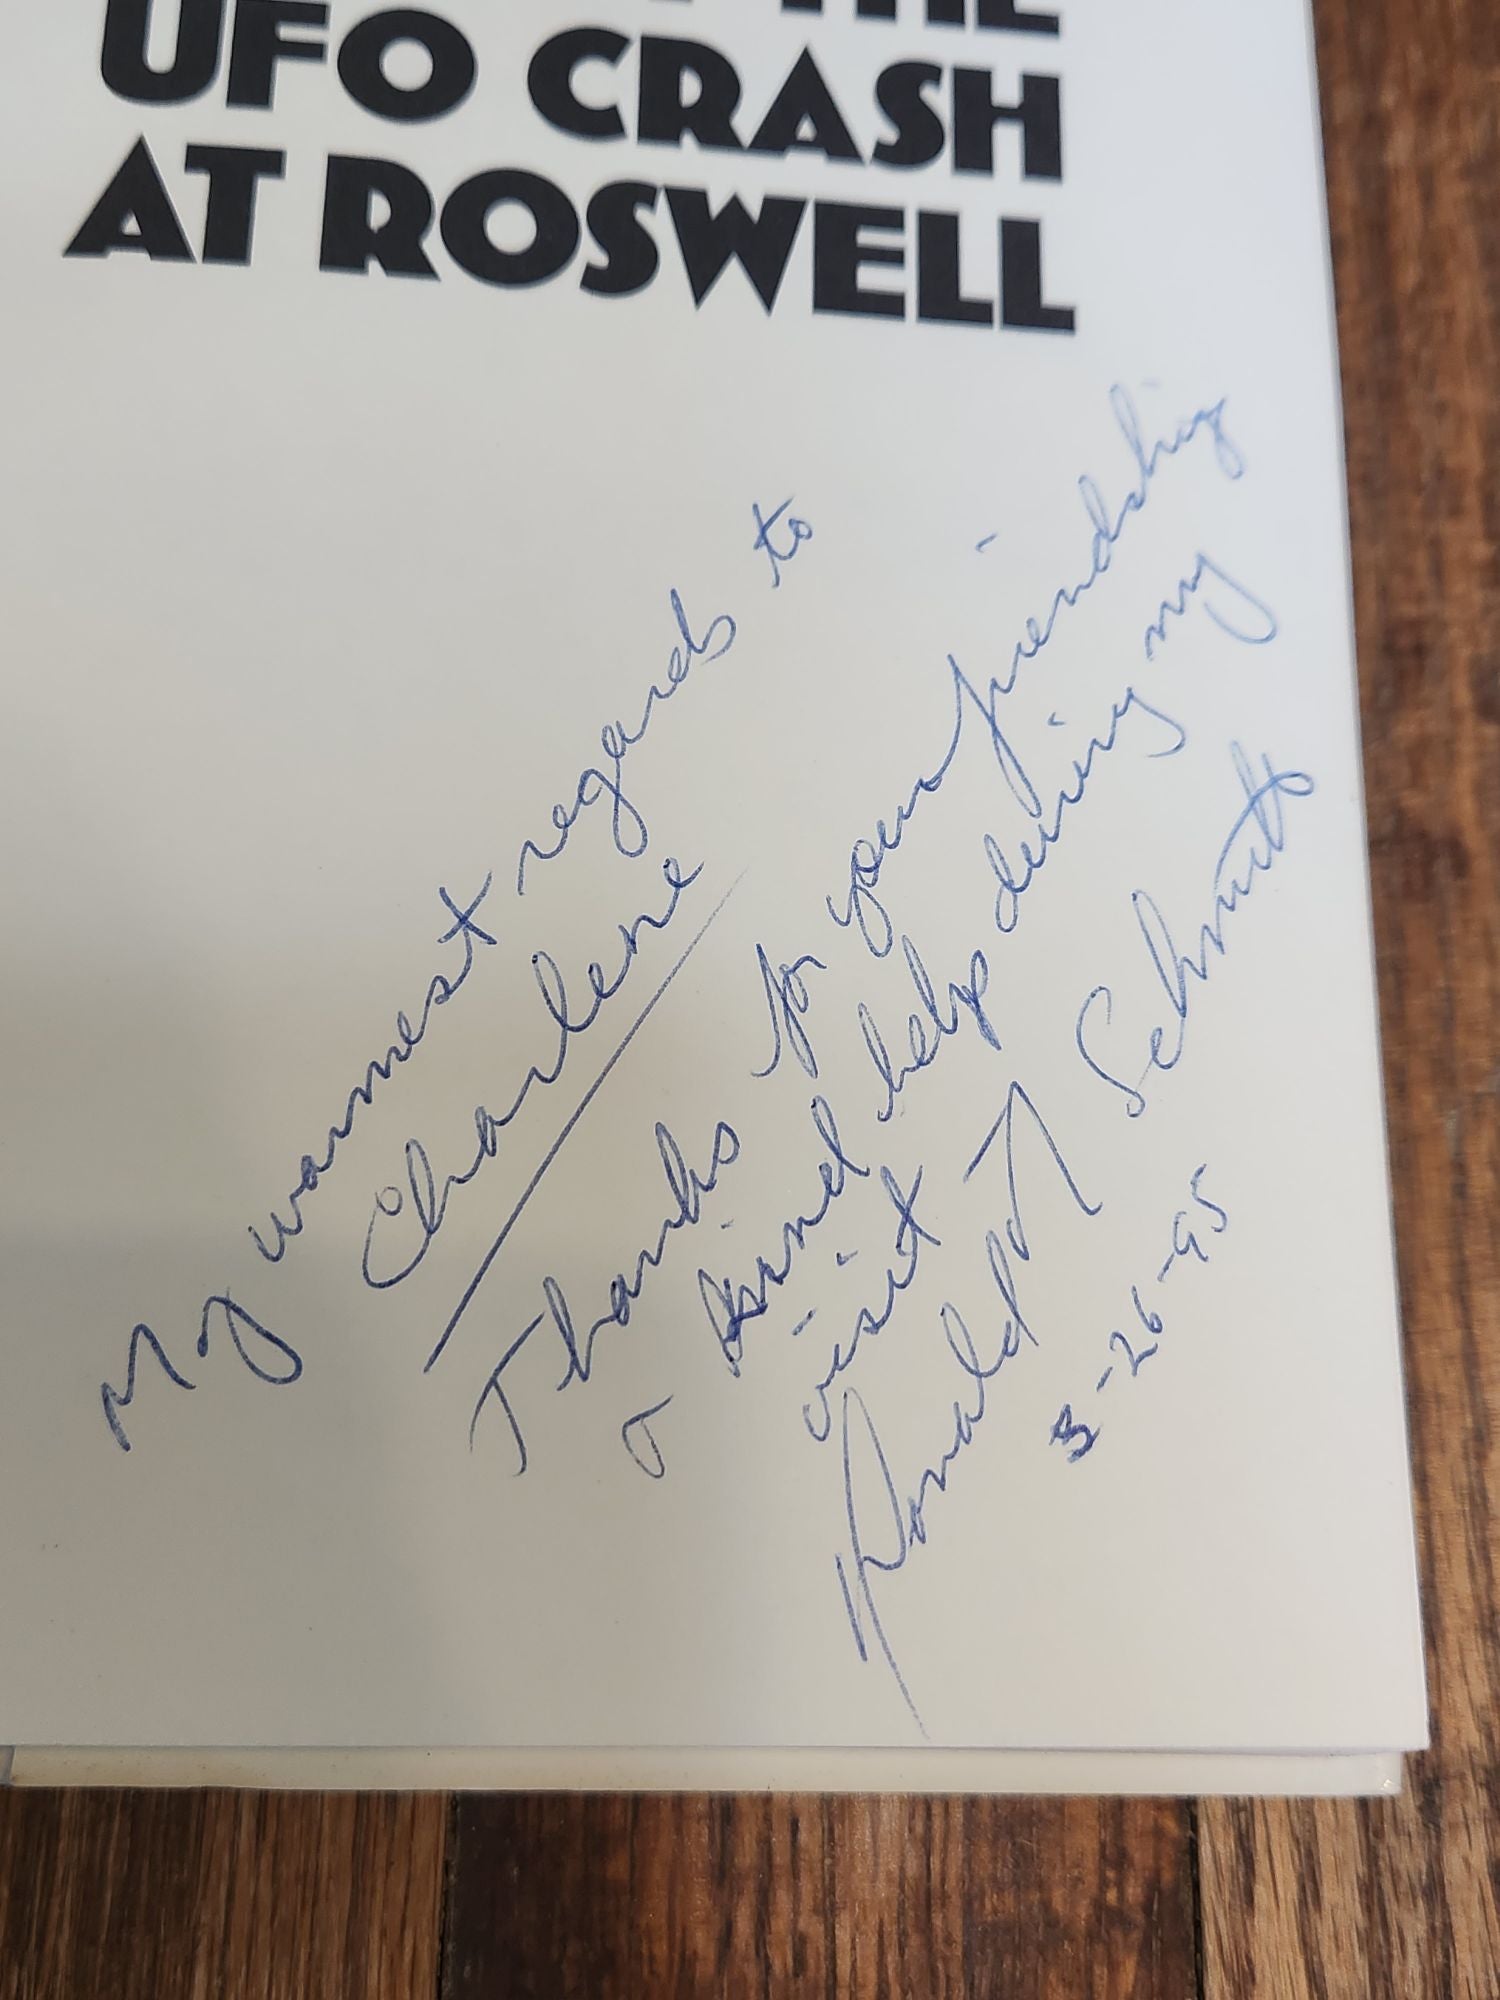 THE
UFO CRASH
AT ROSWELL
My warmest regards to
Charlene
Thanks for your friendship
& kind help during my
visit
Donald R Schmitt
3-26-95